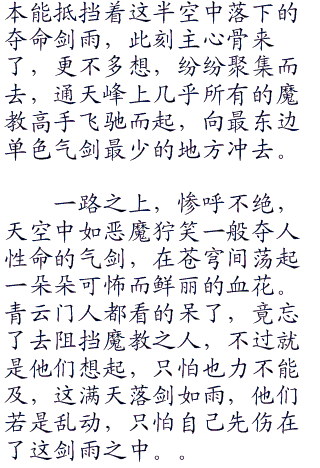 本能抵挡着这半空中落下的
夺命剑雨，此刻主心骨来
了，更不多想，纷纷聚集而
去，通天峰上几乎所有的魔
教高手飞驰而起，向最东边
单色气剑最少的地方冲去。
一路之上，惨呼不绝，
天空中如恶魔狞笑一般夺人
性命的气剑，在苍穹间荡起
一朵朵可怖而鲜丽的血花。
青云门人都看的呆了，竟忘
了去阻挡魔教之人，不过就
是他们想起，只怕也力不能
及，这满天落剑如雨，他们
若是乱动，只怕自己先伤在
了这剑雨之中。。